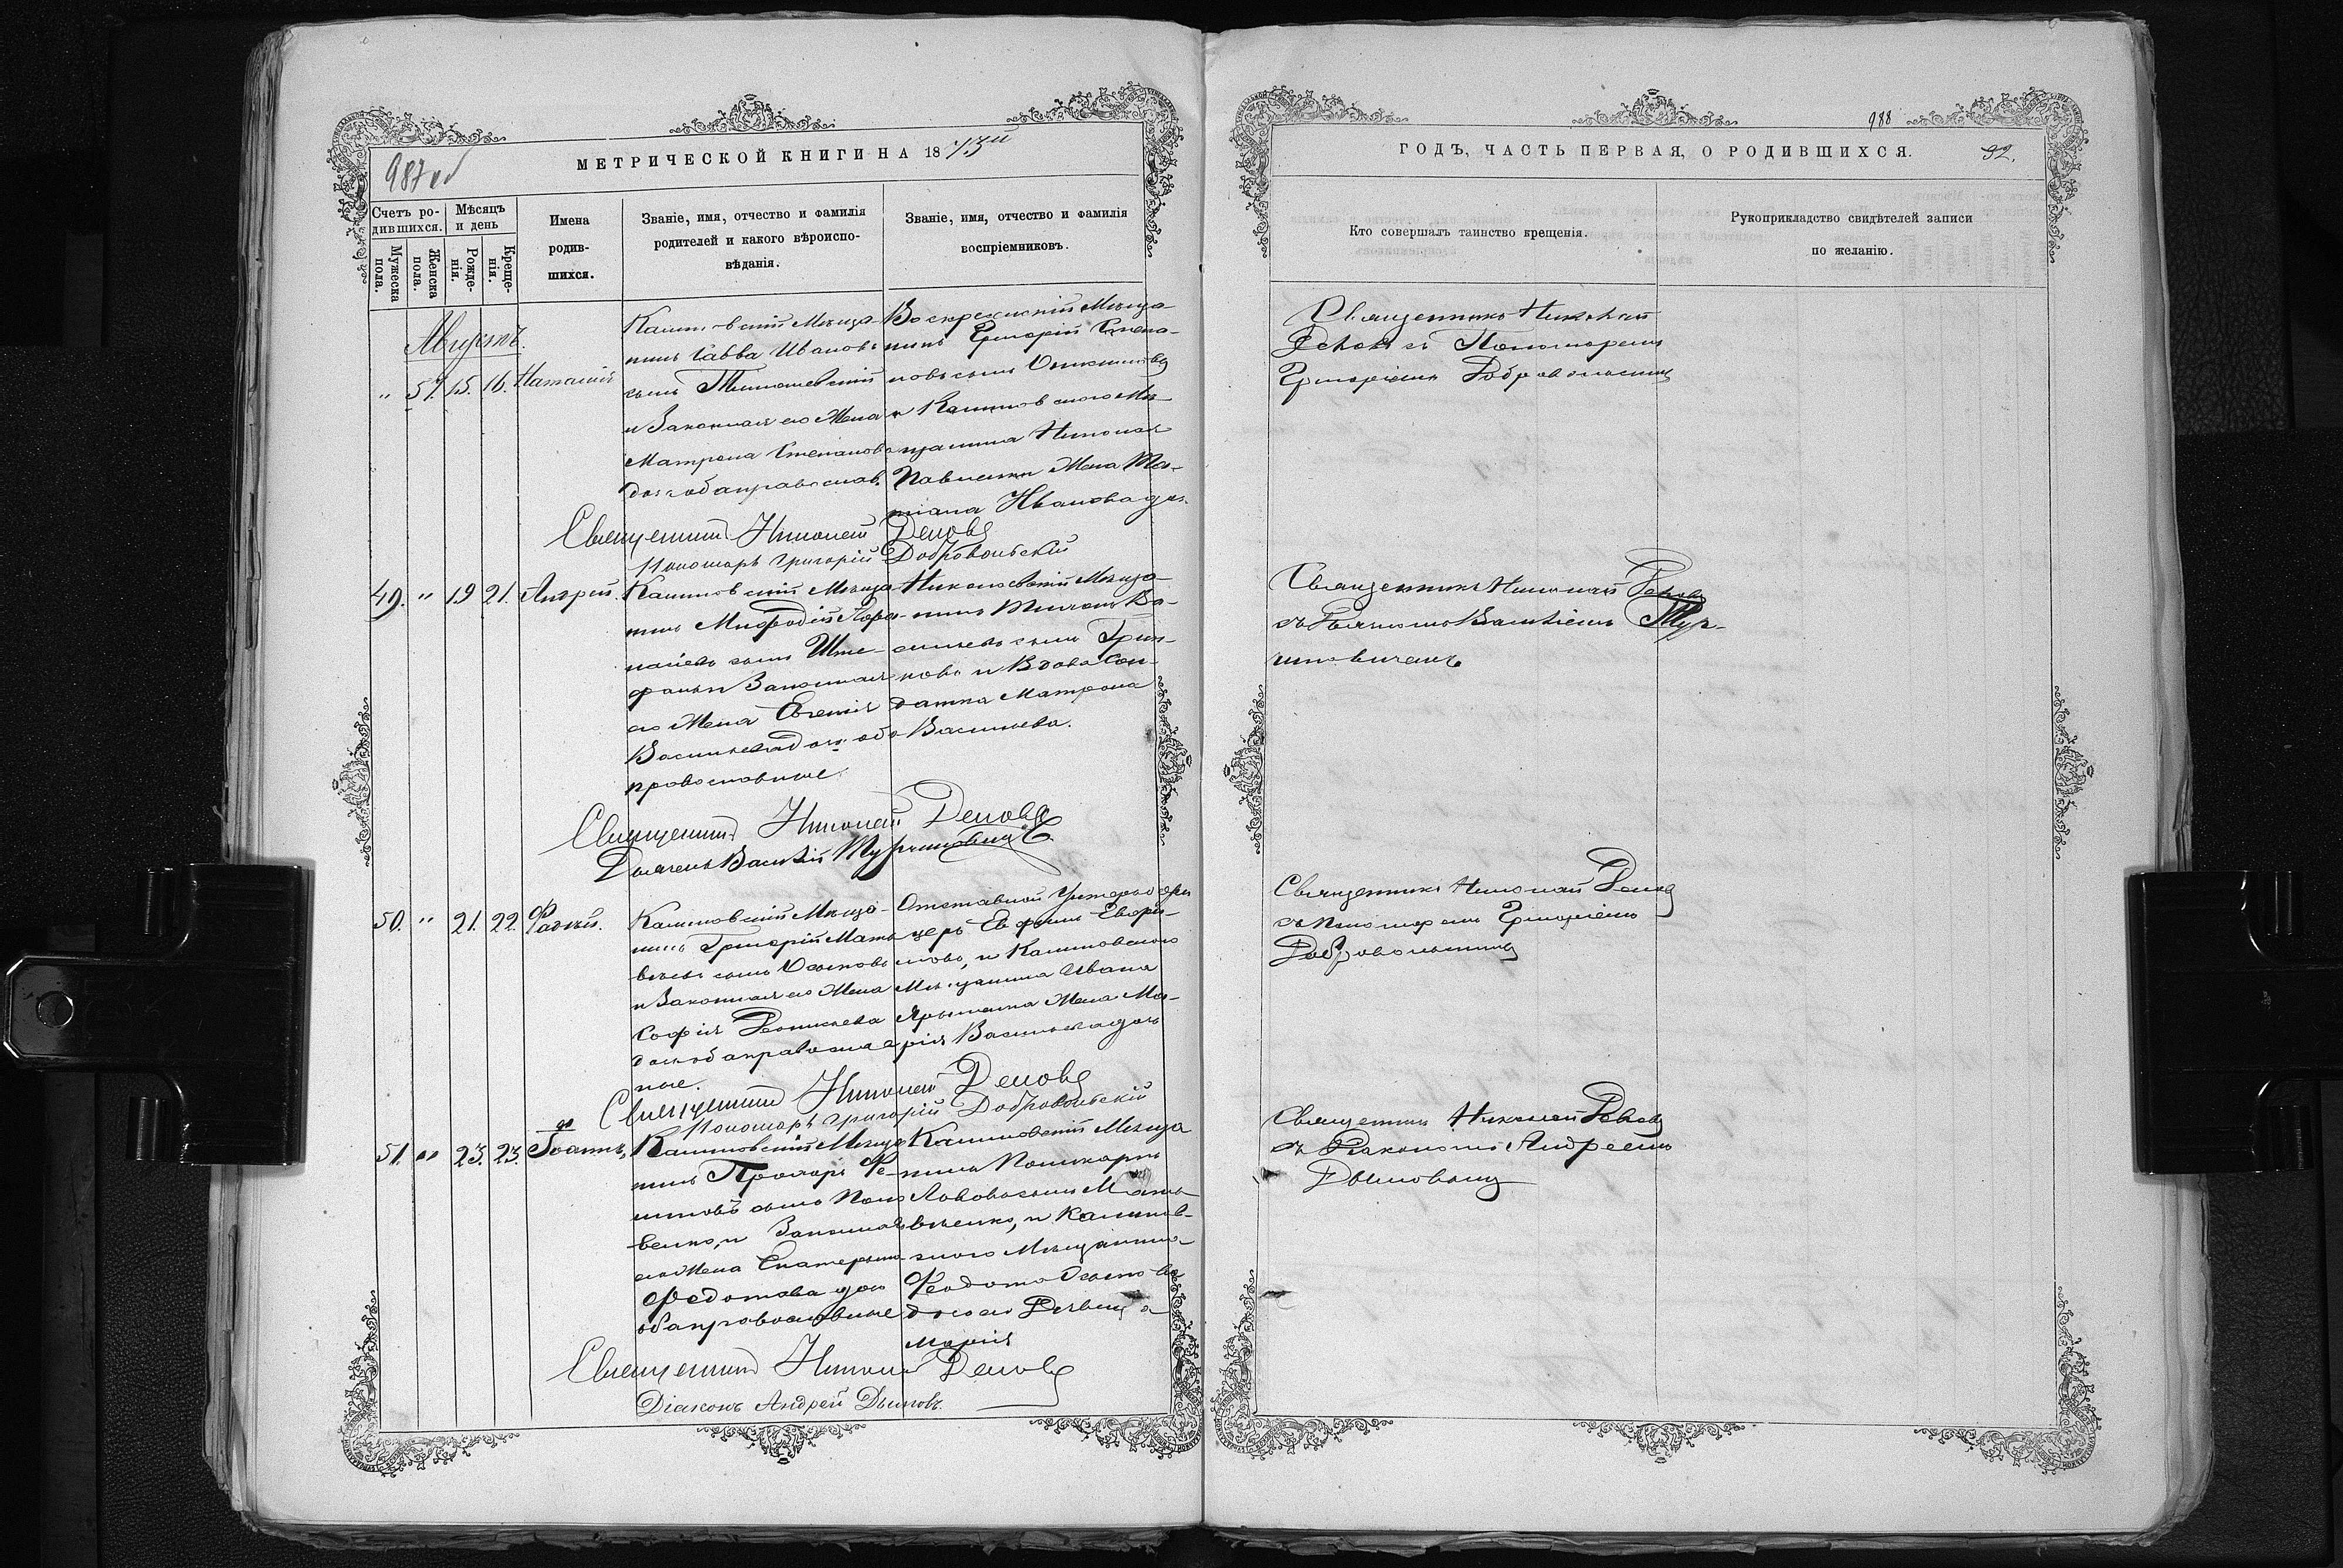 987 об
МЕТРИЧЕСКОЙ КНИГИ НА 1873й
Счетъ ро-
дившихся.
Мѣсяцъ
и день
Мужеска
пола.
Женска
пола.
Рожде-
нія.
Креще-
нія.
Имена
родив-
шихся.
Званіе, имя, отчество и фамилія
родителей и какого вѣроиспо-
вѣданія.
Званіе, имя, отчество и фамилія
воспріемниковъ.
Августъ.
" 57. 15. 16. Наталія
Калиновскій Мѣща-
нинъ Савва Ивановъ
сынъ
и Законная его Жена
Матрона Степанова
доч оба православ.
Воскресенскій Мѣща-
нинъ Григорій Степа-
новъ сынъ
и Калиновского Мѣ-
щанина Николая
Павленки Жена Та-
тіана Иванова доч.
Священникъ Николай Дековъ
Пономарь Григорій Добровольскій
49. " 19 21. Андрей.
Калиновскій Мѣща-
нинъ Мефодій
сынъ
и Законная
его Жена Евгенія
Васильева доч. оба
православные
Николаевскій Мѣща-
нинъ Ва-
сильевъ сынъ Грин-
ковъ и Вдова Сол-
датка Матрона
Васильева.
Священникъ Николай Дековъ
Дьячекъ Василій Турчиновичъ
50. " 21. 22. Фаддей.
Калиновскій Мѣща-
нинъ Григорій Мат-
вѣевъ сынъ Осиповъ
и Законная его Жена
Софія Леонтьева
доч оба православ
ные.
Отставной Унтеръ офи
церъ Ефимъ
и Калиновского
Мѣщанина Ивана
Жена Ма-
рія Васильева доч
Священникъ Николай Дековъ
Пономарь Григорій Добровольскій
51. " 23. 23. Іоаннъ,
Калиновскій Мѣща
нинъ Прохоръ
сынъ
и Законная
его Жена Екатерина
Федотова доч
оба православные
Калиновскій Мѣща
нинъ Поликарпъ
сынъ Мат-
вѣенко, и Калинов-
ского Мѣщанина
Феодота
дочь его Дѣвица
Марія
Священникъ Николай Дековъ
Діаконъ Андрей Дымовъ.
988
ГОДЪ, ЧАСТЬ ПЕРВАЯ, О РОДИВЩИХСЯ.
92.
Кто совершалъ таинство крещенія.
Рукоприкладство свидѣтелей записи
по желанію.
Священникъ Николай
Дековъ съ Пономаремъ
Григоріемъ Добровольскимъ
Священникъ Николай Дековъ
съ Дьячкомъ Василіемъ Тур-
чиновичемъ
Священникъ Николай Дековъ
съ Пономаремъ Григоріемъ
Добровольскимъ
Священникъ Николай Дековъ
съ Діакономъ Андреемъ
Дымовымъ